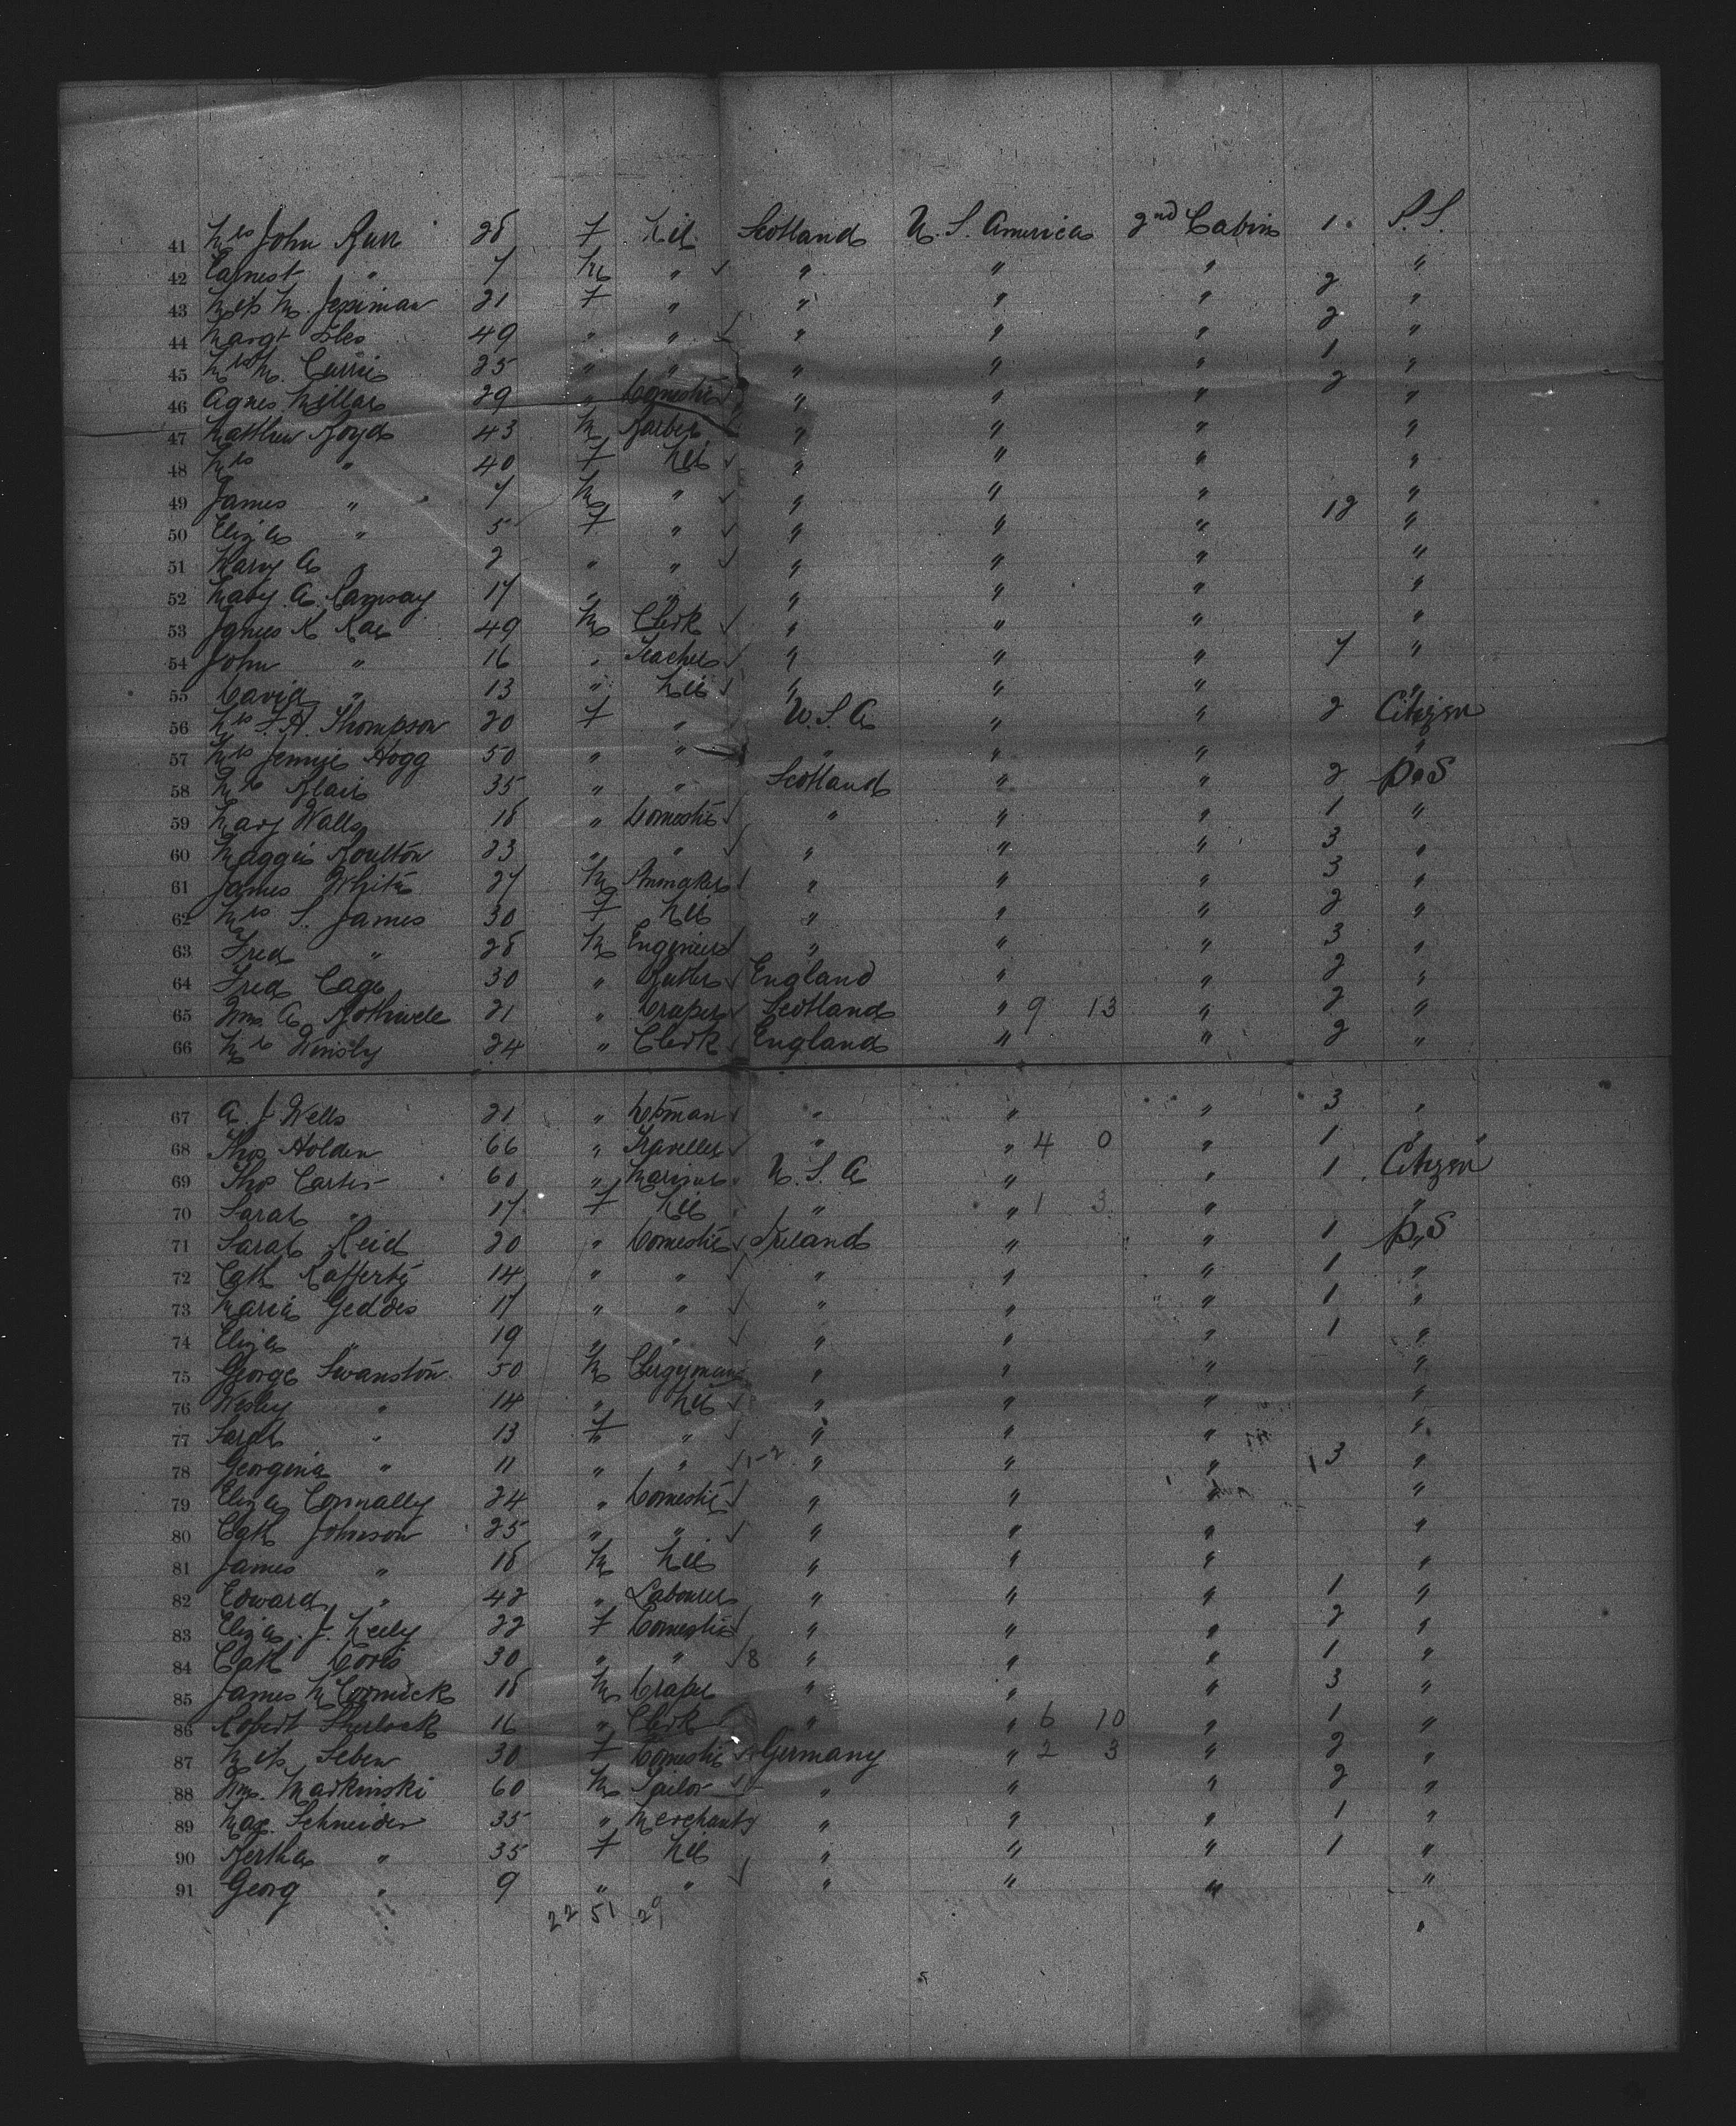 41 Mrs John Barr 28 F Nil Scotland U. S. America 2nd Cabin 1 P.S.
42 Earnest " 7 M " " " " "
43 Miss M. Jessiman 21 F " " " " 2 "
44 Margt Isles 49 " " " " " 2 "
45 Mrs M. Currie 25 " " " " " 1 "
46 Agnes Millar 29 " Domestic " " " 2 "
47 Matthew Boyd 43 M Barber " " " "
48 Mrs " 40 F Nil " " " "
49 James " 7 M " " " " "
50 Eliza " 5 F " " " " 12 "
51 Mary A " 2 " " " " " "
52 Mary A. Ramsay 17 " " " " " "
53 James R Rae 49 M Clerk " " " "
54 John " 16 " Teacher " " " 7 "
55 David " 13 " Nil " " " "
56 Mrs F. H. Thompson 20 F " U.S.A " " 2 Citizen
57 Mrs Jennie Hogg 50 " " " " " "
58 Mrs Blair 35 " " Scotland " " 2 P.S
59 Mary Walls 18 " Domestic " " " 1 "
60 Maggie Boulton 23 " " " " " 3 "
61 James White 27 M " " " 3 "
62 Mrs S. James 30 F Nil " " " 2 "
63 Fred " 28 M Engineer " " " 3 "
64 Fred Cage 30 " Butler England " " 2 "
65 Wm. A. Bothwell 21 " Draper Scotland " 9 13 " 2 "
66 Mr Winsly 24 " Clerk England " " 2 "
67 A J Wells 21 " " " " 3 "
68 Thos Holden 66 " Traveller " " 4 0 " 1 "
69 Thos Carter 60 " Mariner U. S. A " " 1 Citizen
70 Sarah " 17 F Nil " " 1 3 " "
71 Sarah Reid 20 " Domestic Ireland " " 1 P.S
72 Cath Rafferty 14 " " " " " 1 "
73 Maria Geddes 17 " " " " " 1 "
74 Eliza " 19 " " " " " 1 "
75 George Swanston 50 M Clergyman " " " "
76 Wesley " 14 " Nil " " " "
77 Sarah " 13 F " " " " "
78 Georgina " 11 " " 1-2 " " " 13 "
79 Eliza Connally 24 " Domestic " " " "
80 Cath Johnson 25 " " " " " "
81 James " 18 M Nil " " " "
82 Edward " 42 " Labourer " " " 1 "
83 Eliza J. Neely 22 F Domestic " " " 2 "
84 Cath Doris 30 " " 8 " " " 1 "
85 James McCormick 18 M Draper " " " 3 "
86 Robert Sherlock 16 " Clerk " " 6 10 " 1 "
87 Miss Seben 30 F Domestic Germany " 2 3 " 2 "
88 Wm. Markinski 60 M Tailor " " " 2 "
89 Max Schneider 35 " Merchant " " " 1 "
90 Bertha " 35 F Nil " " " 1 "
91 Georg " 9 " " " " " "
22 51 29